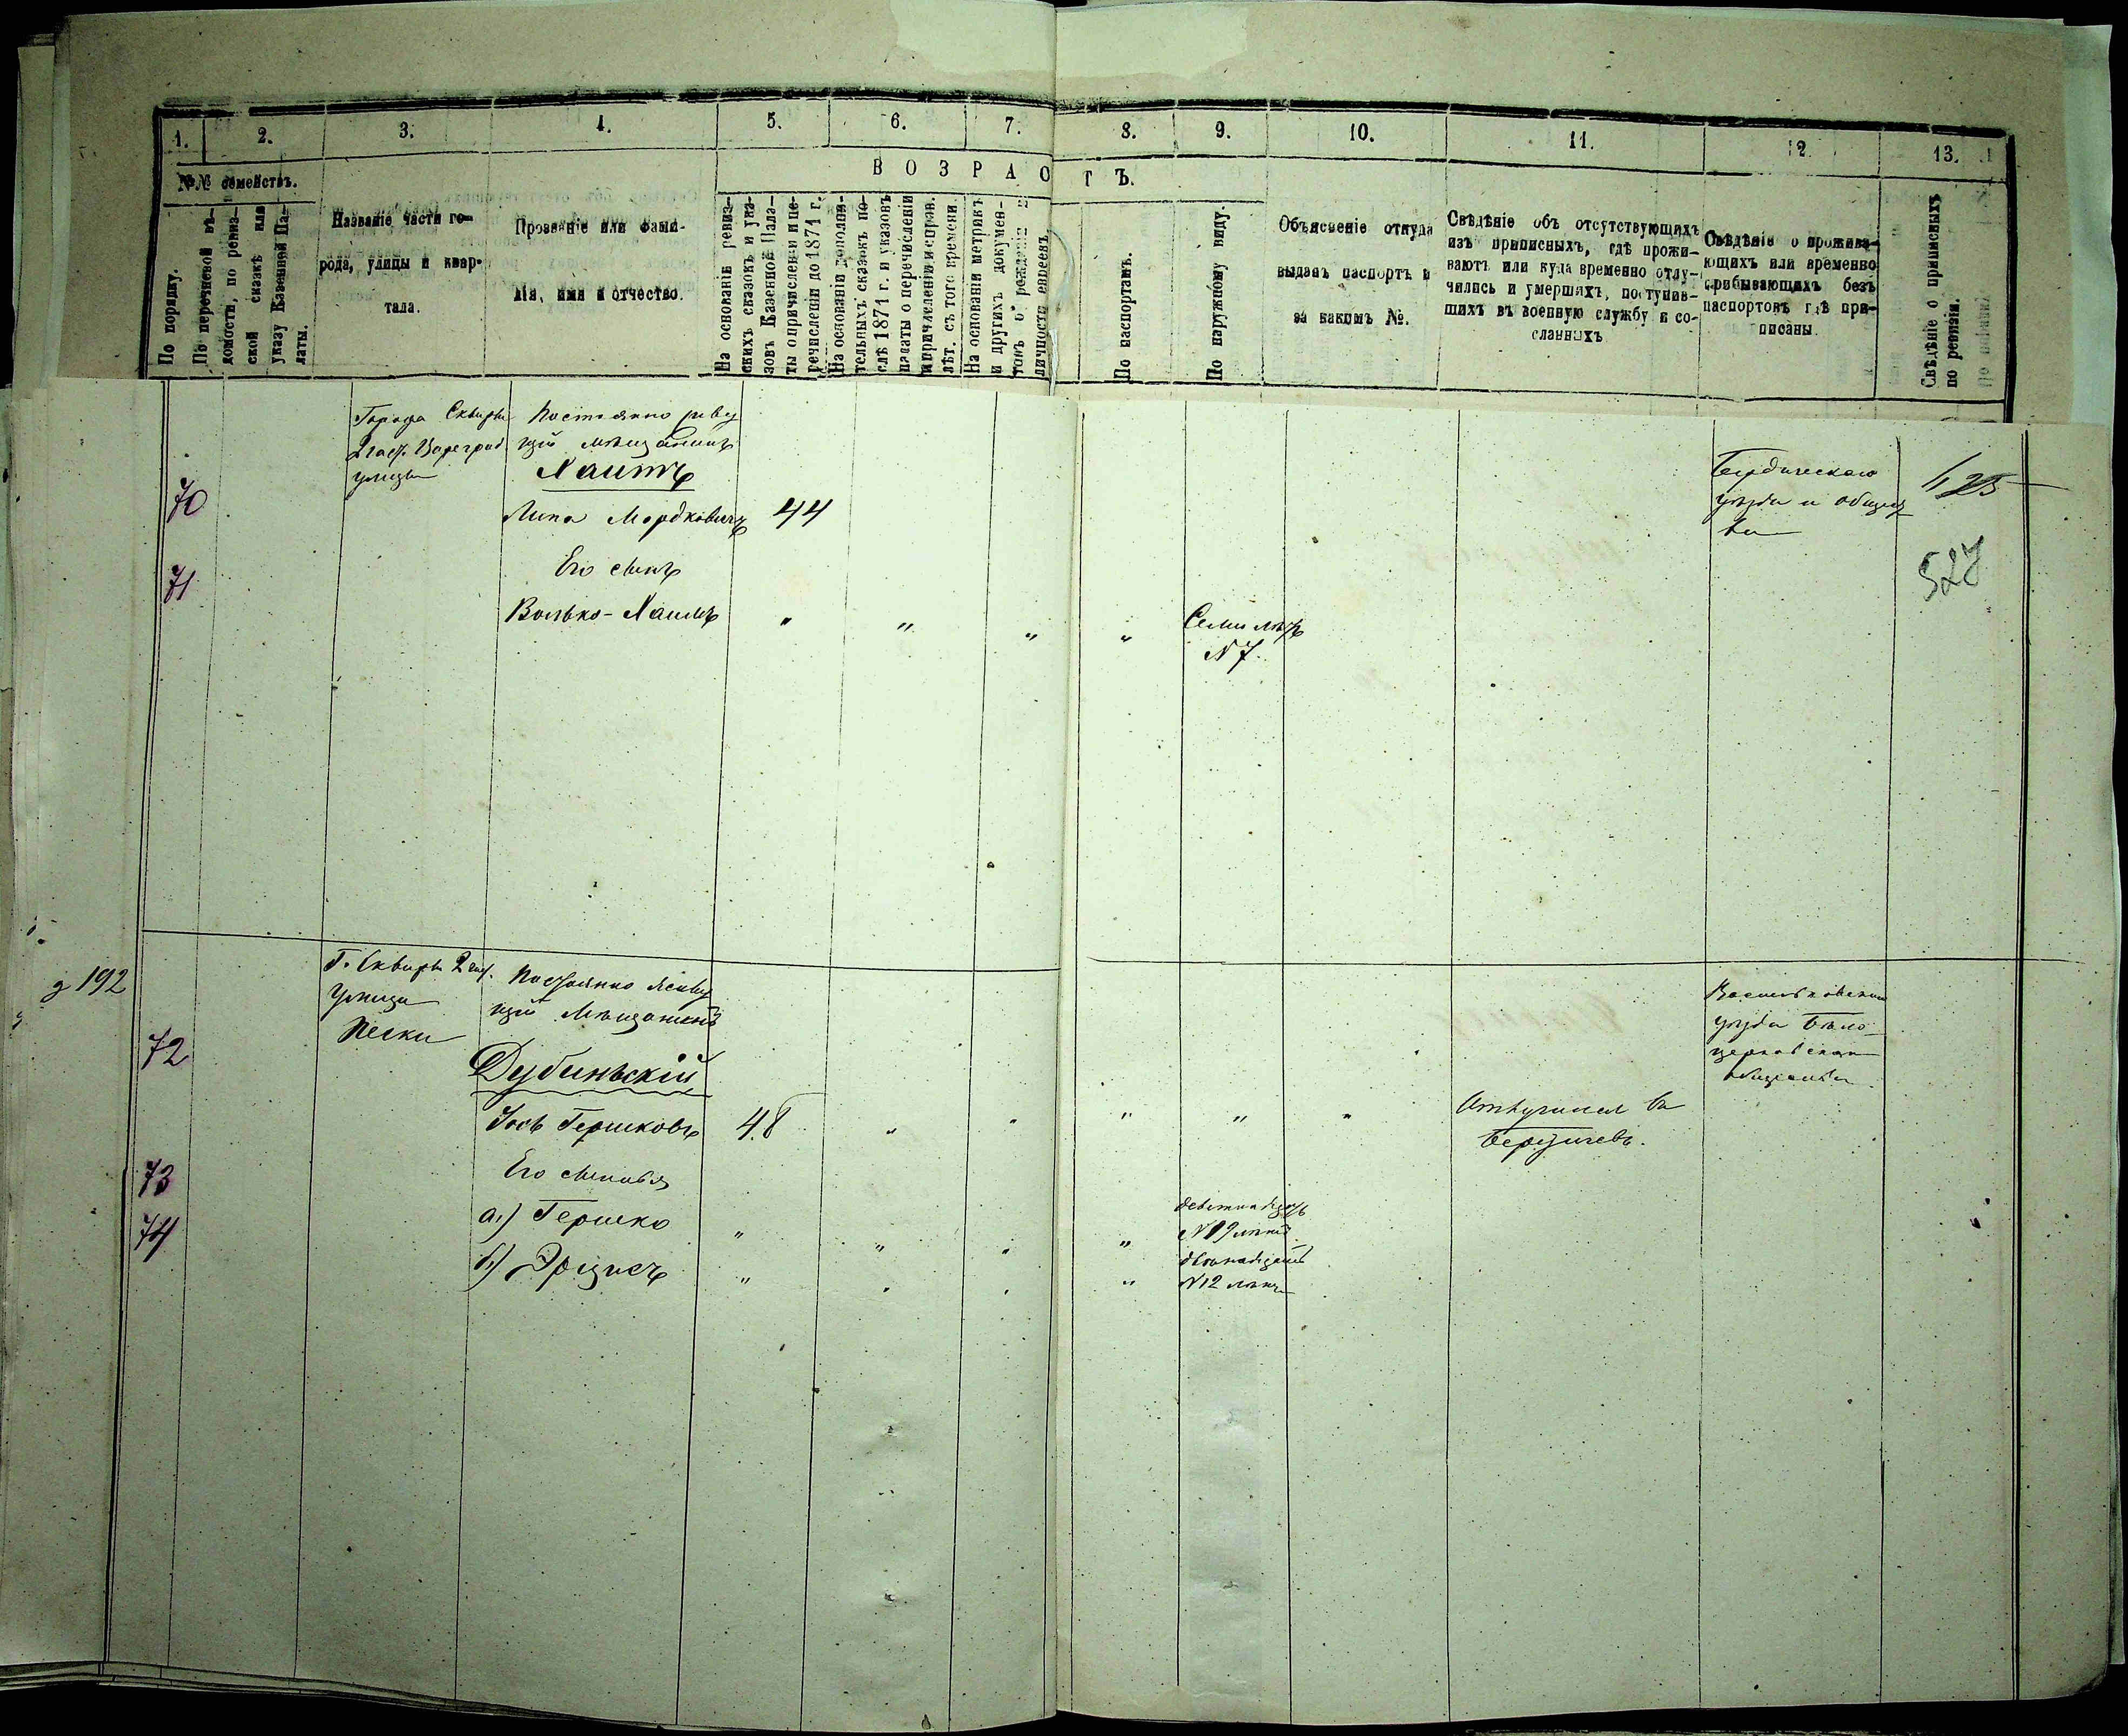 1. 2. 3. 4. 5. 6. 7. 8. 9. 10. 11. 12. 13.
ВОЗРАСТЪ.
№№ семействъ.
По порядку.
По перечневой вѣ-
домости, по ревиз-
ской сказкѣ или
указу Казенной Па-
латы.
Названіе части го-
рода, улицы и квар-
тала.
Прозваніе или фами-
лія, имя и отчество.
На основаніи ревиз-
скихъ сказокъ и ука-
зовъ Казенной Пала-
ты о причисленіи и пе-
речисленіи до 1871 г.
На основаніи дополни-
тельныхъ сказокъ по-
слѣ 1871 г. и указовъ
палаты о перечисленіи
и причисленіи и справ.
лѣт. съ того времени.
На основаніи метрикъ
и другихъ докумен-
товъ о рожденіи и
личности евреевъ.
По паспортамъ.
По наружному виду.
Объясненіе откуда
выданъ паспортъ и
за какимъ №.
Свѣдѣніе объ отсутствующихъ
изъ приписныхъ, гдѣ прожи-
ваютъ или куда временно отлу-
чились и умершихъ, поступив-
шихъ въ военную службу и со-
сланныхъ
Свѣдѣніе о прожива-
ющихъ или временно
прибывающихъ безъ
паспортовъ гдѣ при-
писаны.
Свѣдѣніе о приписныхъ
по ревизіи.
Города Сквиры
2 част. Цареград
улицы
Постоянно живу
щій мѣщанинъ
Хаитъ
70
Липа Мордковичъ 44
Бердическаго
уѣзда и общес
ва
425
71
Его сынъ
Волько-Хаимъ " " " "
Семи лѣтъ
№ 7.
527
192
Г. Сквиры 2 част.
улица
Пески
Постоянно живу
щій Мѣщанинъ
72
Дубиньскій
Васильковскаго
уѣзда Бѣло
церковскаго
общества
Іось Гершковъ 48 " " " " "
Отлучился въ
Бердичевъ.
Его сыновья
73
а.) Гершко " " " "
девятнадцать
№ 19 лѣтъ
74
б.) " " " "
двѣнадцать
№ 12 лѣтъ